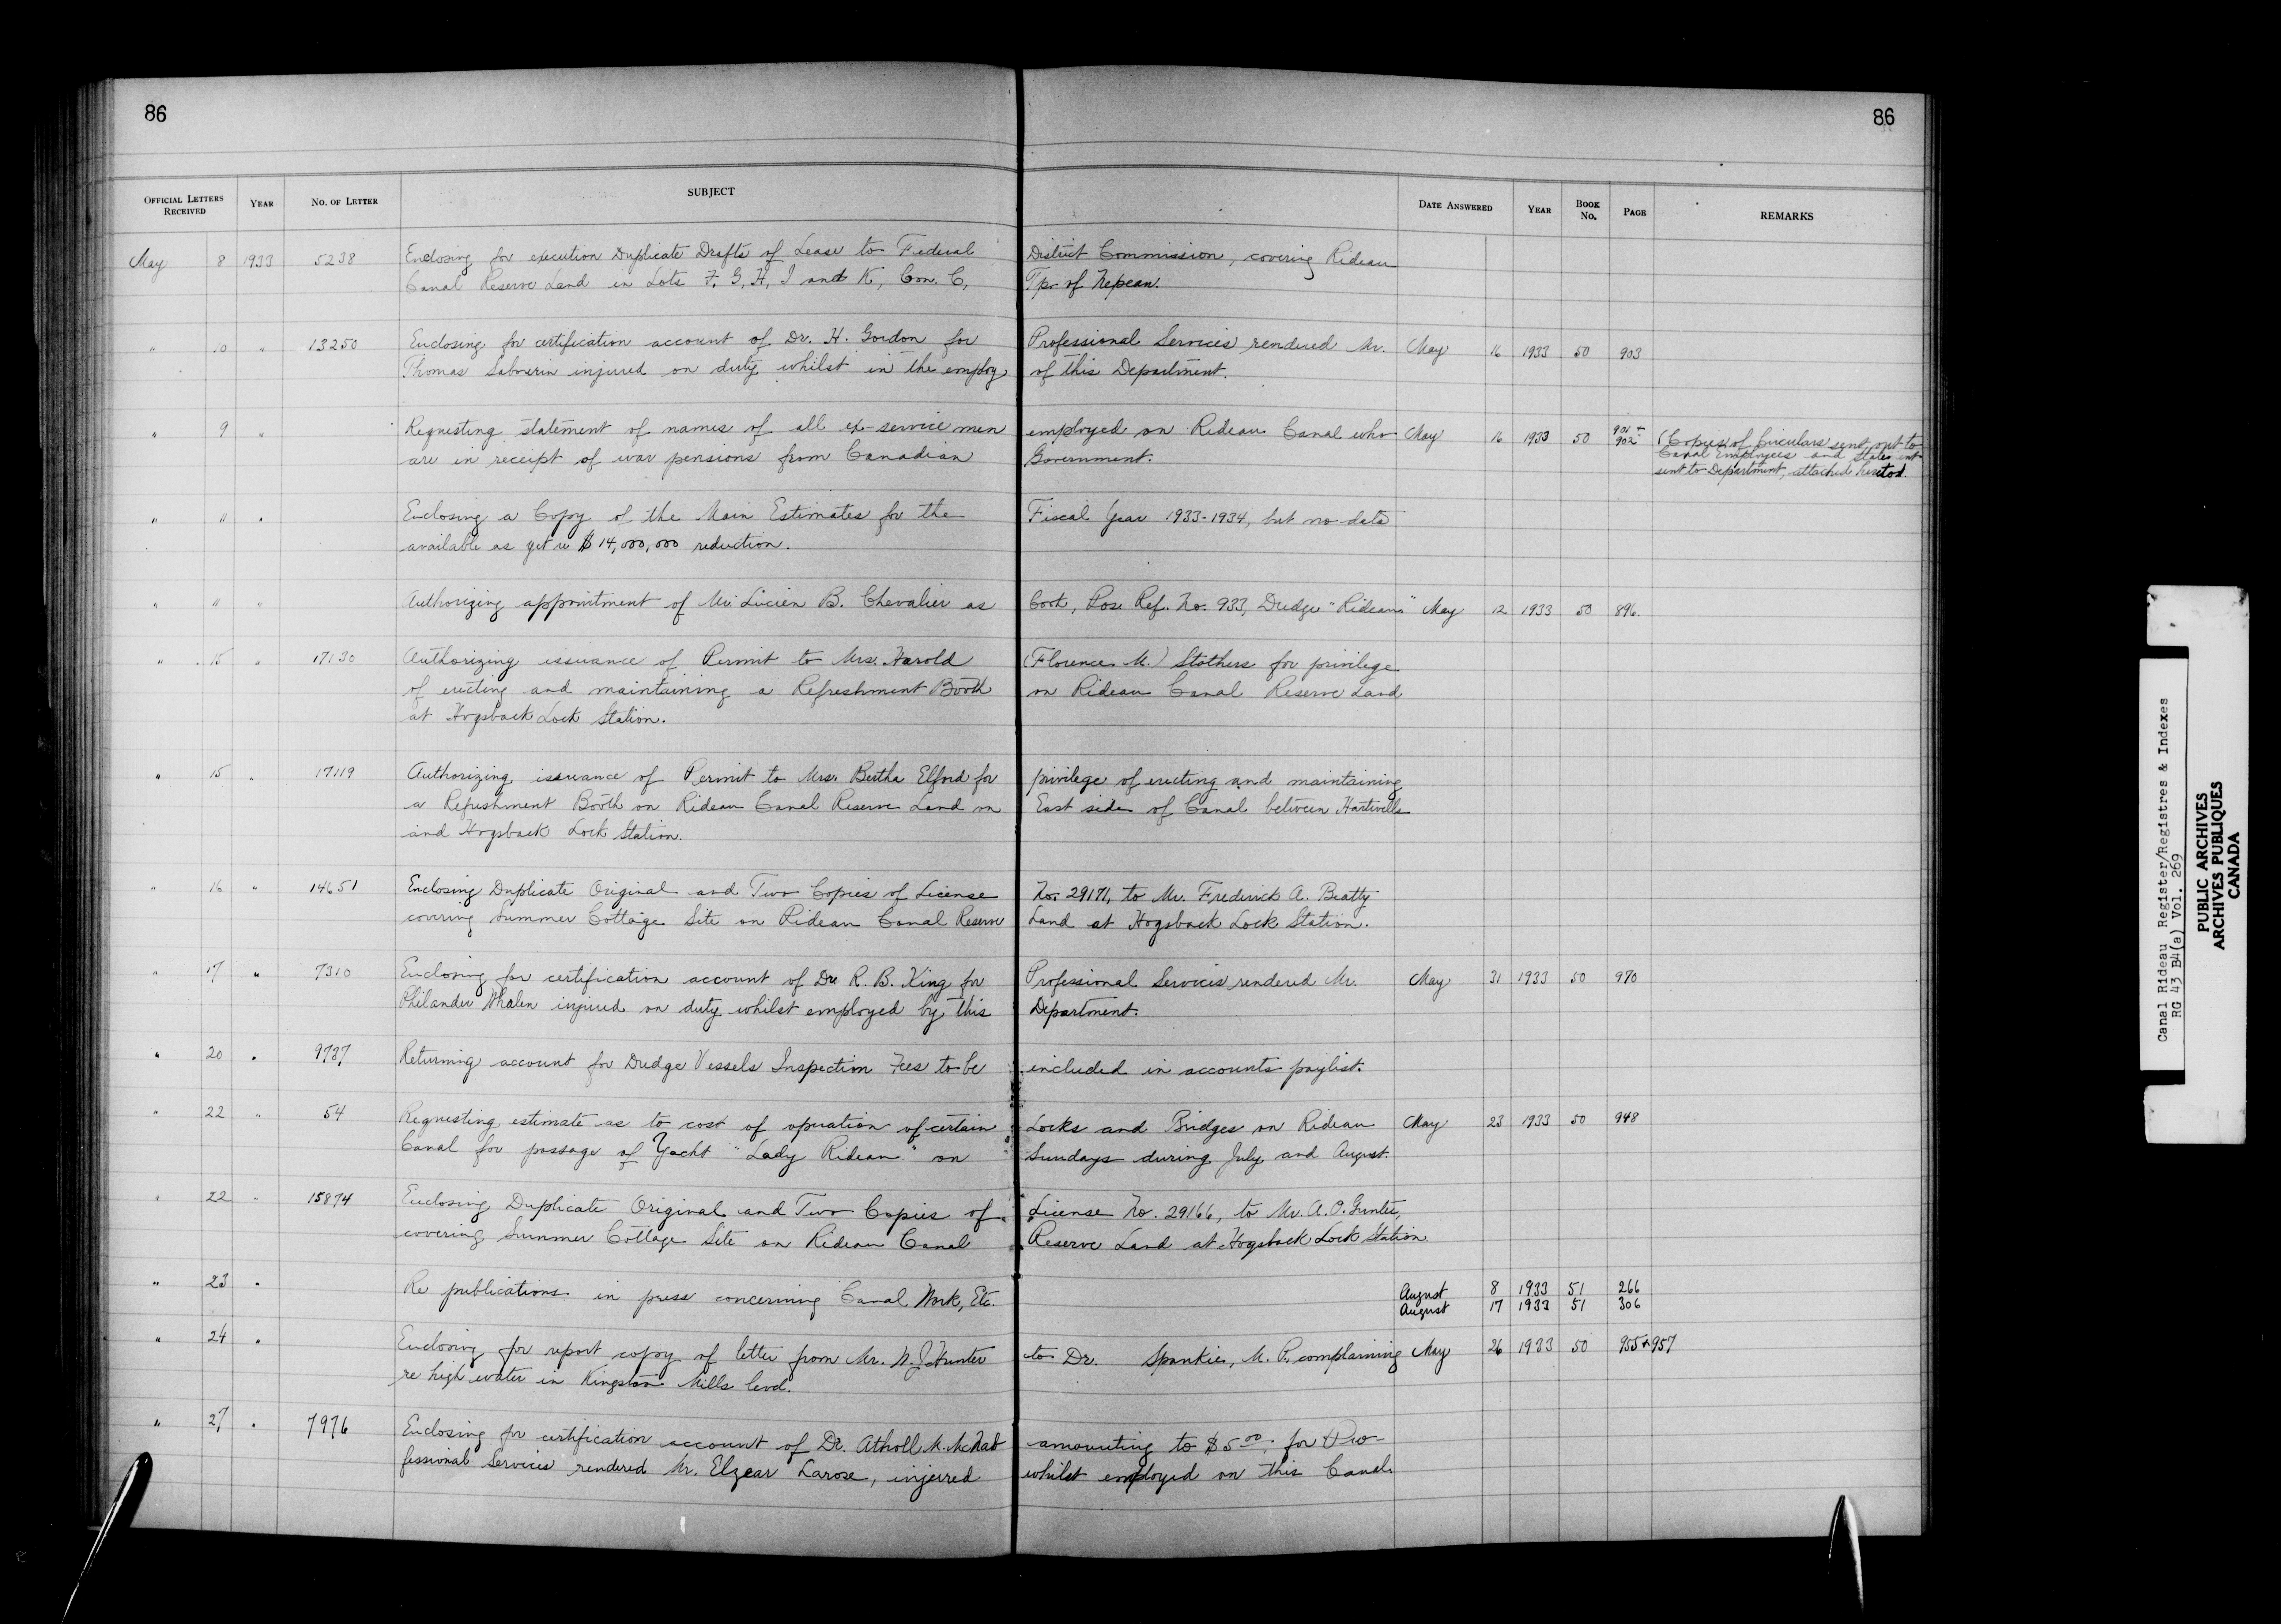 86
86
OFFICIAL LETTERS RECEIVED YEAR NO. OF LETTER SUBJECT DATE ANSWERED YEAR BOOK NO. PAGE REMARKS
May 8 1933 5238 Enclosing for execution Duplicate Drafts of Lease to Federal District Commission, covering Rideau
Canal Reserve Land in Lots F, G, H, I and K, Con. C, Tp. of Nepean.
" 10 " 13250 Enclosing for certification account of Dr. H. Gordon for Professional Services rendered Mr. May 16 1933 50 903
Thomas injured on duty whilst in the employ of this Department.
" 9 " Requesting statement of names of all ex-service men employed on Rideau Canal who May 16 1933 50 901 + 902
are in receipt of war pensions from Canadian Government.
(Copies of Circulars sent out to
Canal Employees and Statement
sent to Department, attached hereto.
" " " Enclosing a Copy of the Main Estimates for the Fiscal Year 1933-1934, but no data
available as yet re $14,000,000 reduction.
" " " Authorizing appointment of Mr. Lucien B. Chevalier as Cook, Pos. Ref. No. 933, Dredge "Rideau" May 12 1933 50 896.
" 15 " 17130 Authorizing issuance of Permit to Mrs. Harold (Florence M.) Stothers for privilege
of erecting and maintaining a Refreshment Booth on Rideau Canal Reserve Land
at Hogsback Lock Station.
" 15 " 17119 Authorizing issuance of Permit to Mrs. Bertha Elford for privilege of erecting and maintaining
a Refreshment Booth on Rideau Canal Reserve Land on East side of Canal between Hartwells
and Hogsback Lock Station.
" 16 " 14651 Enclosing Duplicate Original and Two Copies of License No. 29171, to Mr. Frederick A. Beatty
covering Summer Cottage Site on Rideau Canal Reserve Land at Hogsback Lock Station.
" 17 " 7310 Enclosing for certification account of Dr. R. B. King for Professional Services rendered Mr. May 31 1933 50 970
Philander Whalen injured on duty whilst employed by this Department.
" 20 " 9737 Returning account for Dredge Vessels Inspection Fees to be included in accounts paylist.
" 22 " 54 Requesting estimate as to cost of operation of certain Locks and Bridges on Rideau May 23 1933 50 948
Canal for passage of Yacht "Lady Rideau" on Sundays during July and August.
" 22 " 15874 Enclosing Duplicate Original and Two Copies of License No. 29166, to Mr. A. O. Gunter,
covering Summer Cottage Site on Rideau Canal Reserve Land at Hogsback Lock Station.
" 23 " Re publications in press concerning Canal Work, Etc. August 8 1933 51 266
August 17 1933 51 306
" 24 " Enclosing for report copy of letter from Mr. W. J. Hunter to Dr. Spankie, M. P. complaining May 26 1933 50 955 & 957
re high water in Kingston Mills level.
" 27 " 7976 Enclosing for certification account of Dr. Atholl M. McNab amounting to $5.00, for Pro-
fessional Services rendered Mr. Elzear Larose, injured whilst employed on this Canal.
Canal Rideau Register/Registres & Indexes
RG 43 B4(a) Vol. 269
PUBLIC ARCHIVES
ARCHIVES PUBLIQUES
CANADA